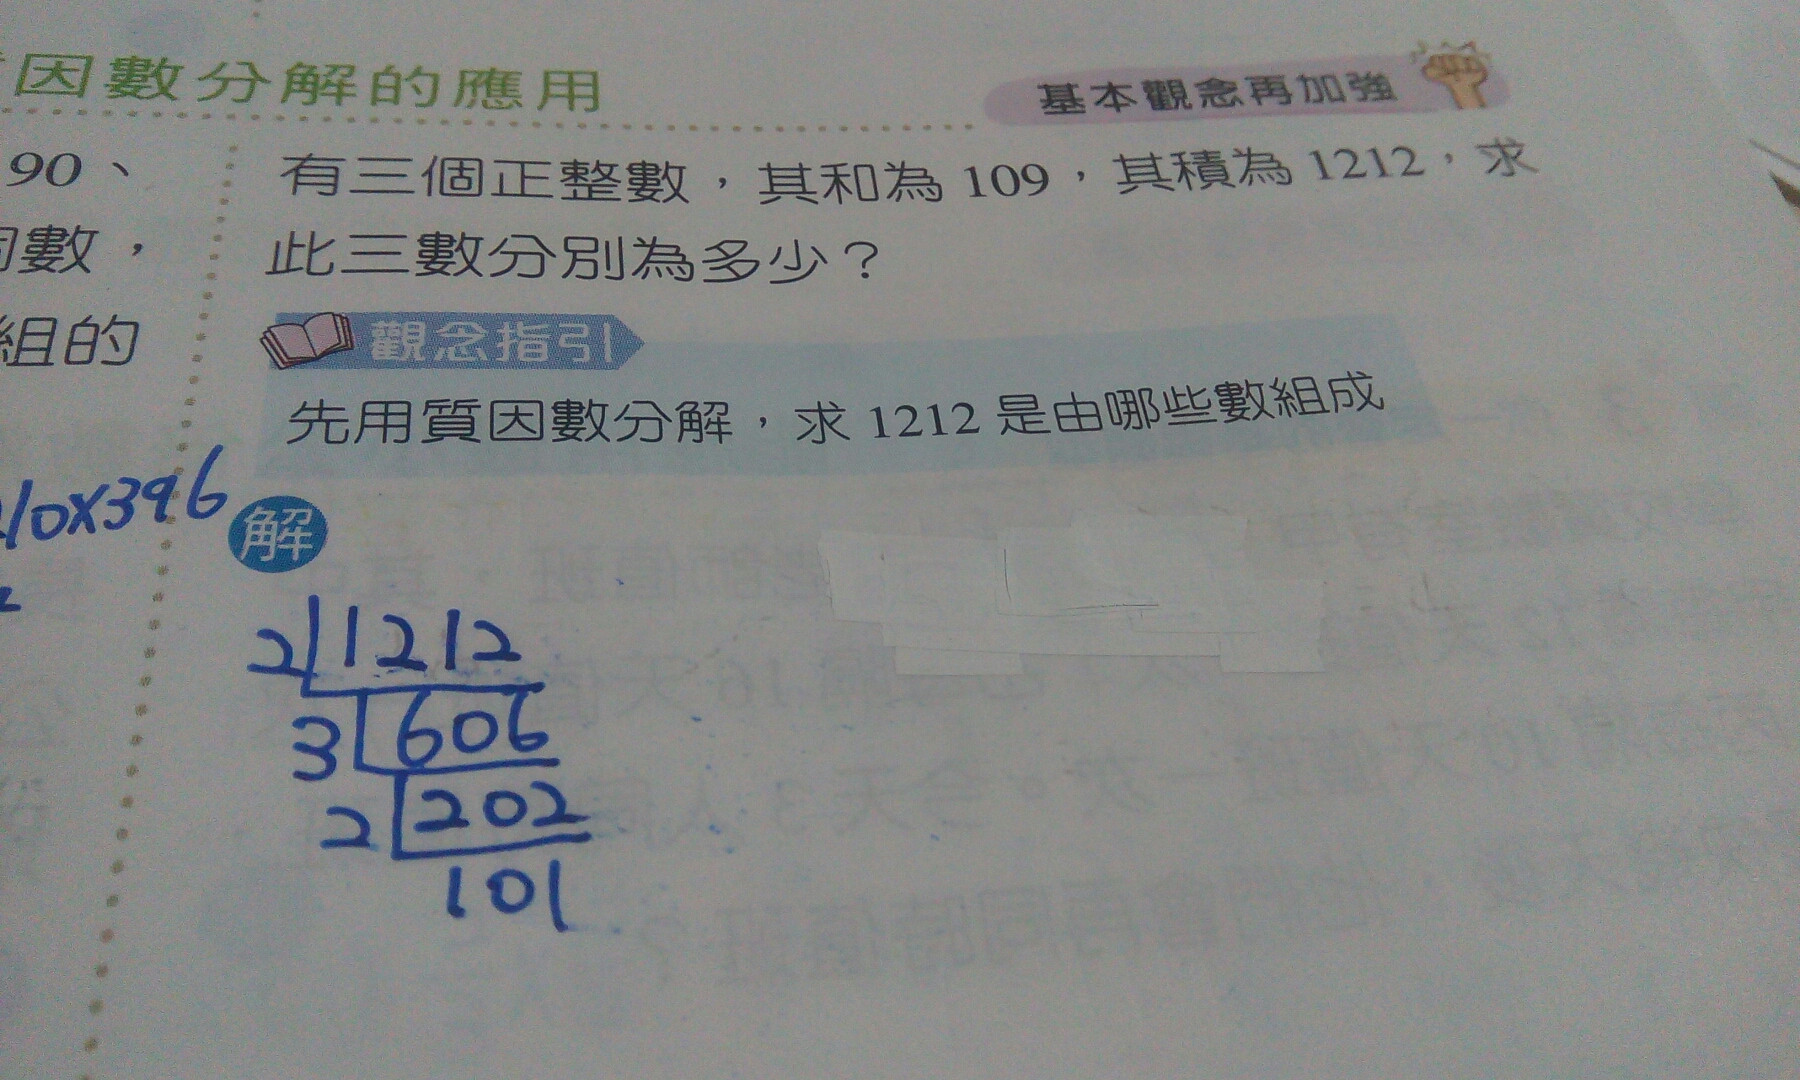 因數分解的應用
基本觀念再加強
90、
數，
組的
10×396
有三個正整數，其和為 109，其積為 1212，求
此三數分別為多少？
觀念指引
先用質因數分解，求 1212 是由哪些數組成
解
2 1212
3 606
2 202
101